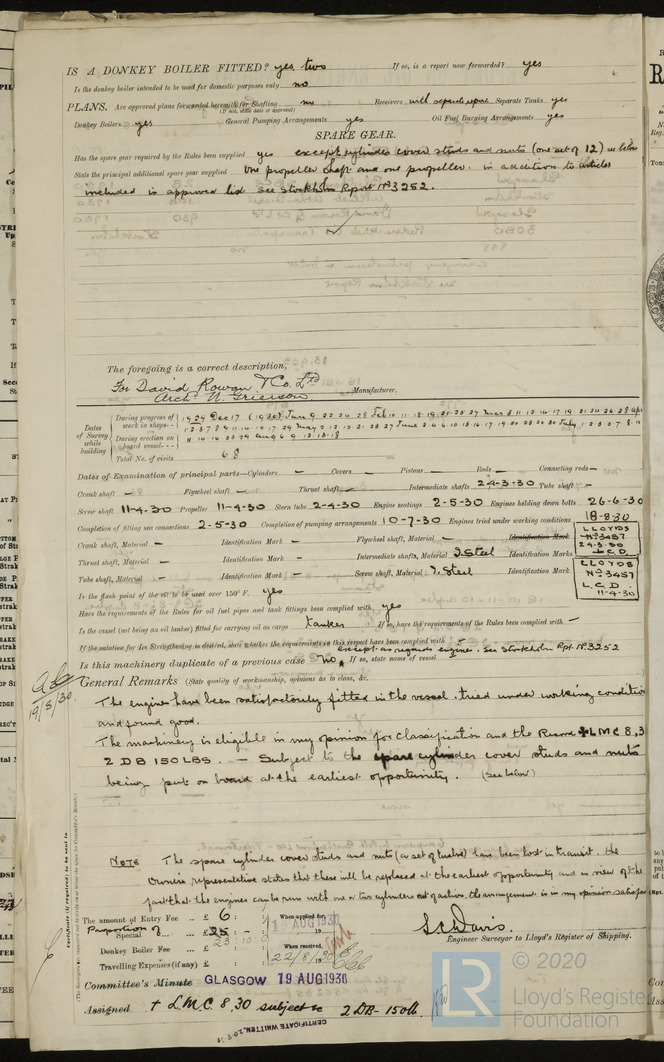 IS A DONKEY BOILER FITTED? yes two If so, is a report now forwarded? yes
Is the donkey boiler intended to be used for domestic purposes only no
PLANS. Are approved plans forwarded herewith for Shafting no Receivers will separate report Separate Tanks yes
(If not, state date of approval)
Donkey Boilers yes General Pumping Arrangements yes Oil Fuel Burning Arrangements yes
SPARE GEAR.
Has the spare gear required by the Rules been supplied yes except cylinder cover studs and nuts (one set of 12) see below
State the principal additional spare gear supplied one propeller shaft and one propeller. in addition to articles
included in approved list see Stockholm Report No 3252.
The foregoing is a correct description,
For David Rowan & Co. Ltd
Arch. W. Grierson Manufacturer.
Dates of Survey while building
During progress of work in shops--
During erection on board vessel---
Total No. of visits 68
Dates of Examination of principal parts—Cylinders – Covers – Pistons – Rods – Connecting rods –
Crank shaft – Flywheel shaft – Thrust shaft – Intermediate shafts 24-3-30 Tube shaft –
Screw shaft 11-4-30 Propeller 11-4-30 Stern tube 2-4-30 Engine seatings 2-5-30 Engines holding down bolts 26-6-30
Completion of fitting sea connections 2-5-30 Completion of pumping arrangements 10-7-30 Engines tried under working conditions 18-8-30
Crank shaft, Material – Identification Mark – Flywheel shaft, Material – Identification Mark
Thrust shaft, Material – Identification Mark – Intermediate shafts, Material I. Steel Identification Marks
LLOYDS
No 3457
24-3-30
L.C.D
Tube shaft, Material – Identification Mark – Screw shaft, Material I. Steel Identification Mark
LLOYDS
No 3457
L.C.D
11-4-30
Is the flash point of the oil to be used over 150° F. yes
Have the requirements of the Rules for oil fuel pipes and tank fittings been complied with yes
Is the vessel (not being an oil tanker) fitted for carrying oil as cargo tanker If so, have the requirements of the Rules been complied with –
If the notation for Ice Strengthening is desired, state whether the requirements in this respect have been complied with –
except as regards engines. See Stockholm Rpt. No. 3252
Is this machinery duplicate of a previous case no If so, state name of vessel
19/8/30
General Remarks (State quality of workmanship, opinions as to class, &c.
The engines have been satisfactorily fitted in the vessel, tried under working conditions
and found good.
The machinery is eligible in my opinion for classification and the Record ✠LMC 8,3
2 DB 150 LBS. — Subject to the spare cylinder cover studs and nuts
being put on board at the earliest opportunity. (See below)
NOTE The spare cylinder cover studs and nuts (a set of twelve) have been lost in transit. the
Owners representative states that these will be replaced at the earliest opportunity and in view of the
fact that the engines can be run with one or two cylinders out of action, the arrangement is in my opinion satisfac
The amount of Entry Fee .. £ 6 : : When applied for,
19 AUG 1930
Proportion of Special ... £ 25 : –
23 : 10 : 0
Donkey Boiler Fee ... £ : : When received,
22/8/30
Travelling Expenses (if any) £ : :
S. C. Davis.
Engineer Surveyor to Lloyd's Register of Shipping.
Committee's Minute GLASGOW 19 AUG 1930
Assigned + L.M.C. 8,30 subject to 2 DB- 150 lb.
CERTIFICATE WRITTEN
Certificate (if required) to be sent to
© 2020
LR
Lloyd's Register
Foundation